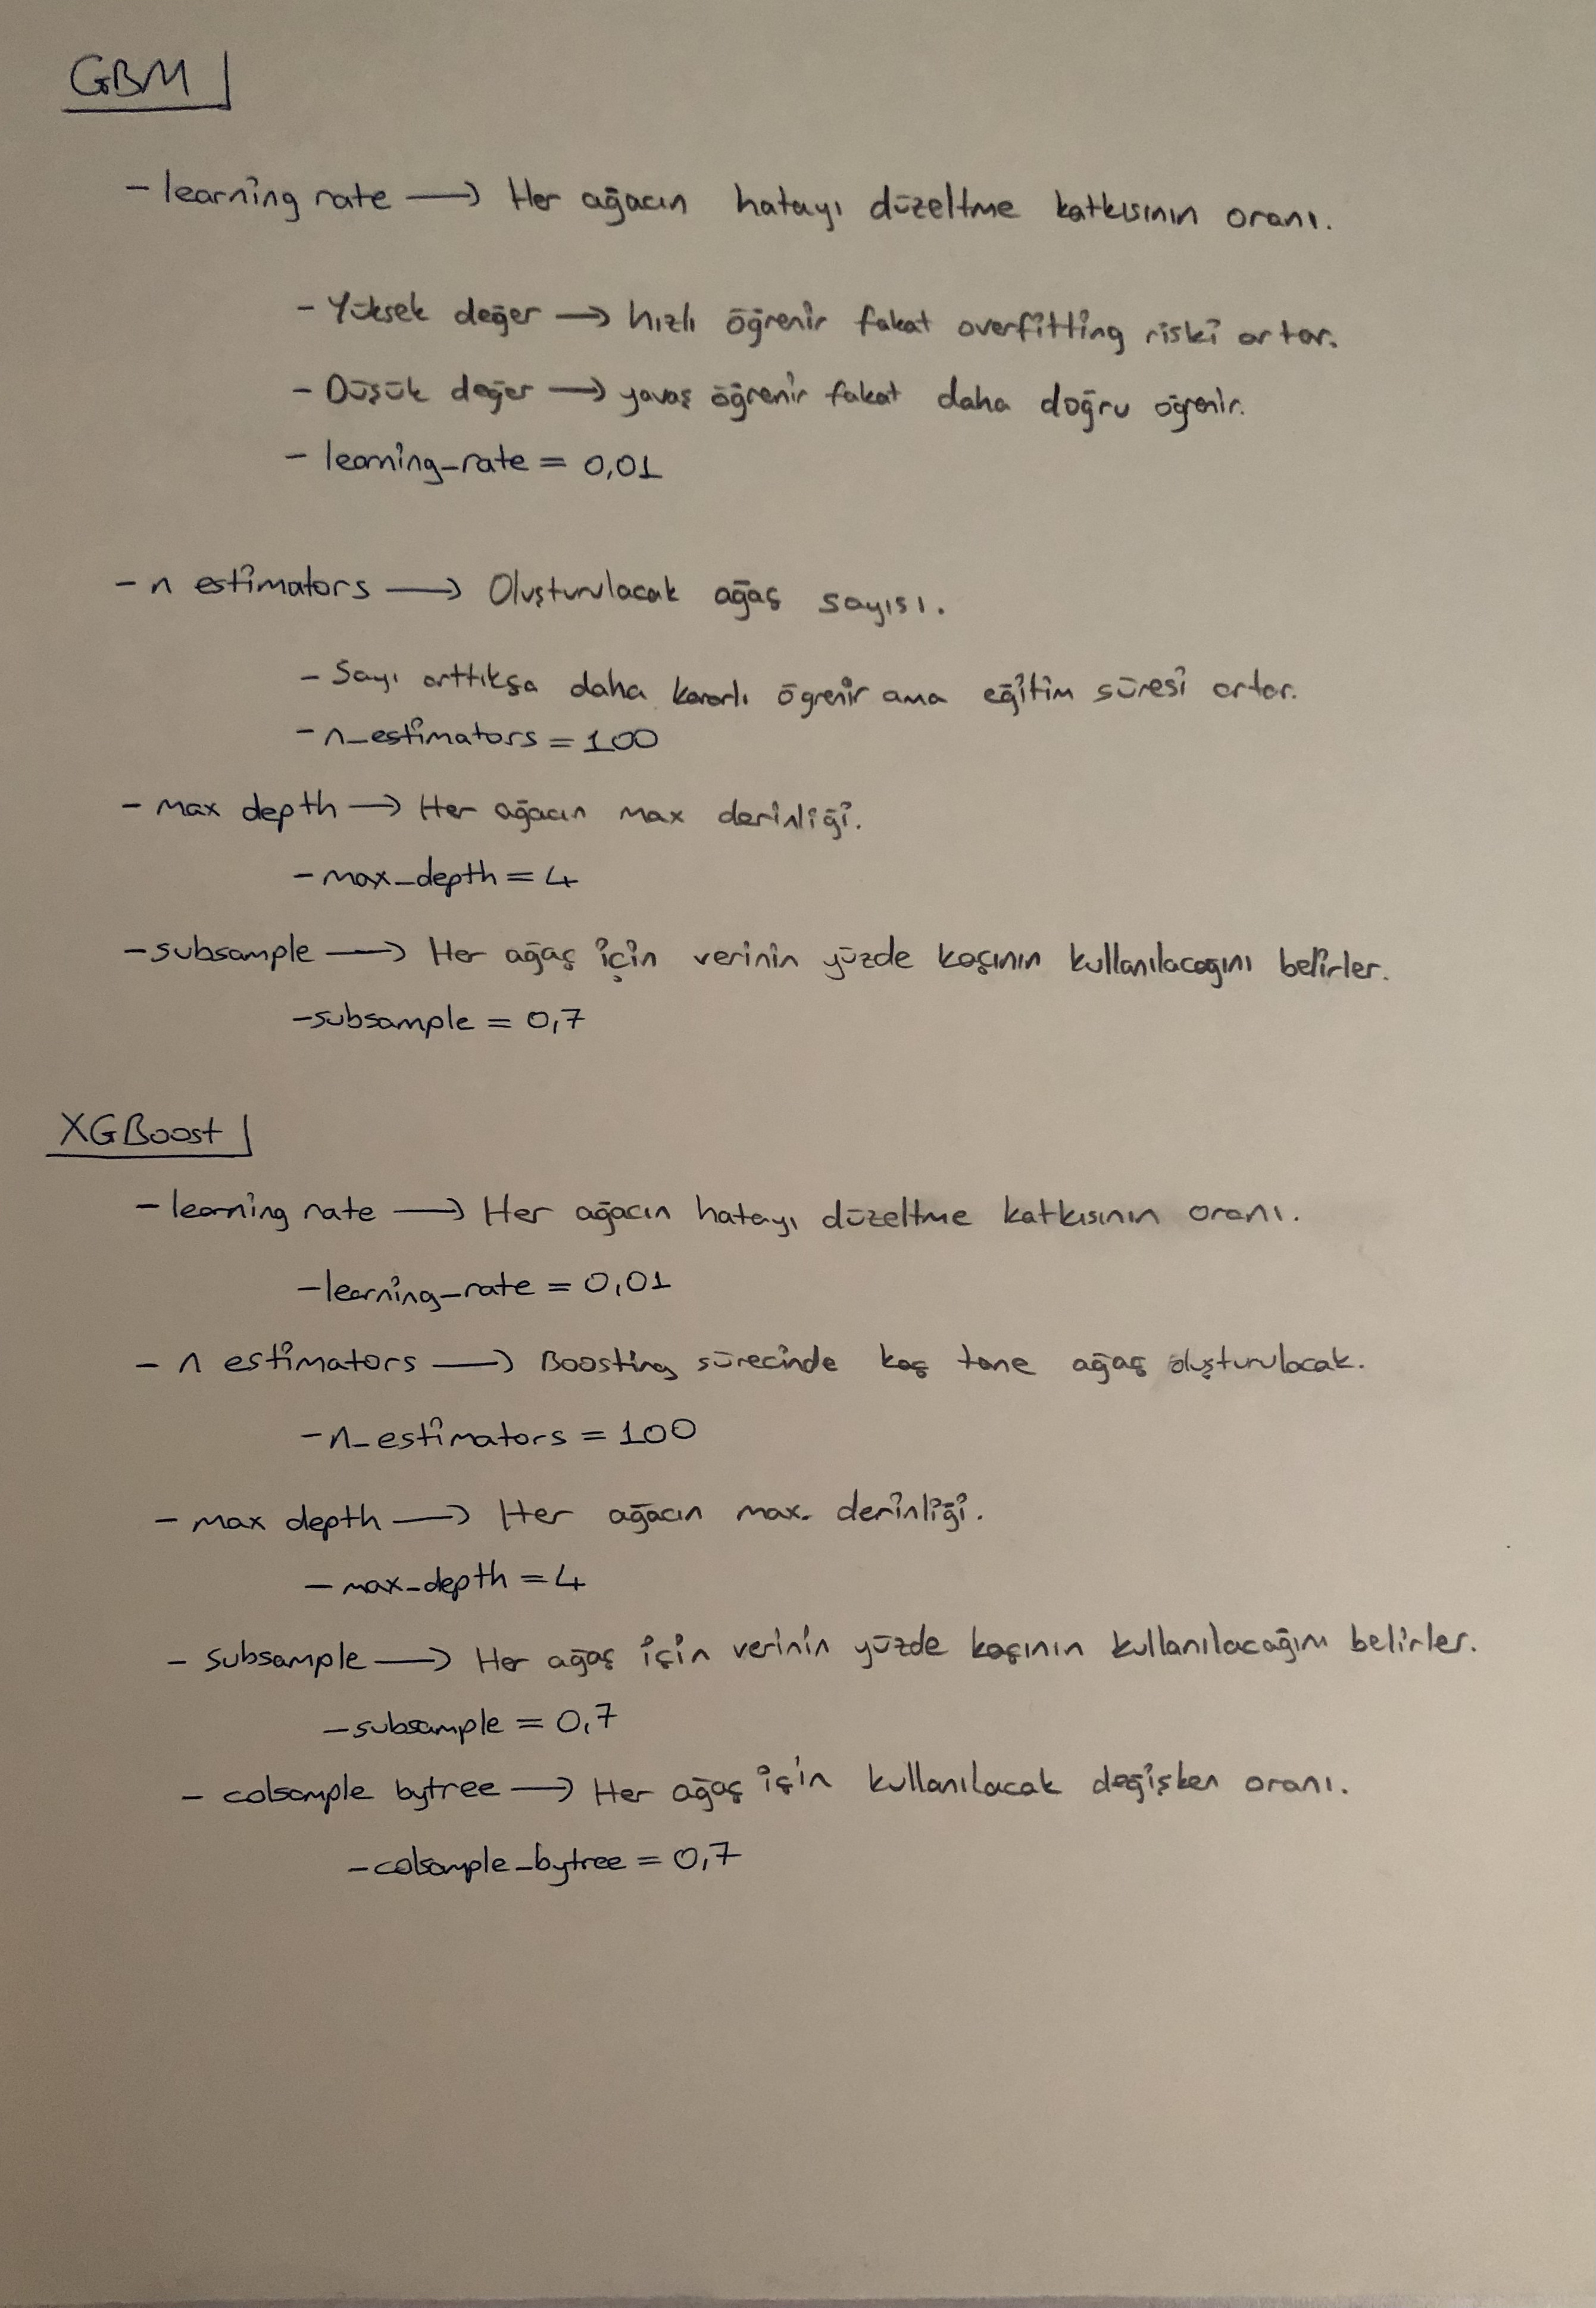 GBM
- learning rate → Her ağacın hatayı düzeltme katkısının oranı.
- Yüksek değer → hızlı öğrenir fakat overfitting riski artar.
- Düşük değer → yavaş öğrenir fakat daha doğru öğrenir.
- learning_rate = 0,01
- n estimators → Oluşturulacak ağaç sayısı.
- Sayı arttıkça daha kararlı ögrenir ama eğitim süresi artar.
- n_estimators = 100
- max depth → Her ağacın max derinliği.
- max_depth = 4
- subsample → Her ağaç için verinin yüzde kaçının kullanılacağını belirler.
- subsample = 0,7
XGBoost
- learning rate → Her ağacın hatayı düzeltme katkısının oranı.
- learning_rate = 0,01
- n estimators → Boosting sürecinde kaç tane ağaç oluşturulacak.
- n_estimators = 100
- max depth → Her ağacın max. derinliği.
- max_depth = 4
- subsample → Her ağaç için verinin yüzde kaçının kullanılacağını belirler.
- subsample = 0,7
- colsample bytree → Her ağaç için kullanılacak değişken oranı.
- colsample_bytree = 0,7